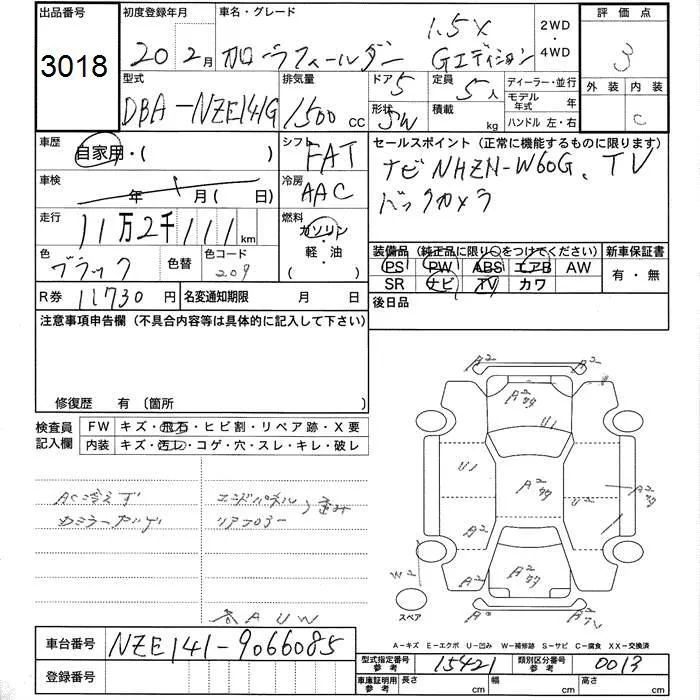 出品番号
3018
初度登録年月
20 2月
車名・グレード
カローラフィールダー 1.5X
Gエディション
2WD
・
4WD
評価点
3
外装 内装
C
型式
DBA-NZE141G
排気量
1500 cc
ドア 5
形状 5W
定員 5人
積載 kg
ディーラー・並行
モデル年式 年
ハンドル 左・右
車歴
自家用・( )
シフト
FAT
セールスポイント (正常に機能するものに限ります)
ナビ NHZN-W60G、TV
バックカメラ
車検
年 月 ( 日)
冷房
AAC
走行
11万2千111km
燃料
ガソリン
・
軽・油
( )
色
ブラック
色替
色コード
209
装備品 (純正品に限り○をつけてください)
PS PW ABS エアB AW
SR ナビ TV カワ
新車保証書
有・無
R券 11730円
名変通知期限 月 日
後日品
注意事項申告欄 (不具合内容等は具体的に記入して下さい)
修復歴 有 〔箇所 〕
検査員記入欄
FW キズ・飛石・ヒビ割・リペア跡・X要
内装 キズ・汚レ・コゲ・穴・スレ・キレ・破レ
AC冷えず
エンドパネル、歪み
リアフロアー
AUW
A2 A2
A2
U1 U1
A2
A2
A2
A2
W2
A2
A2
スペア
A-キズ E-エクボ U-凹み W-補修跡 S-サビ C-腐食 XX-交換済
車台番号
NZE141-9066085
登録番号
型式指定番号
参考
15421
類別区分番号
参考
0013
車庫証明用
参考
長さ cm
幅 cm
高さ cm